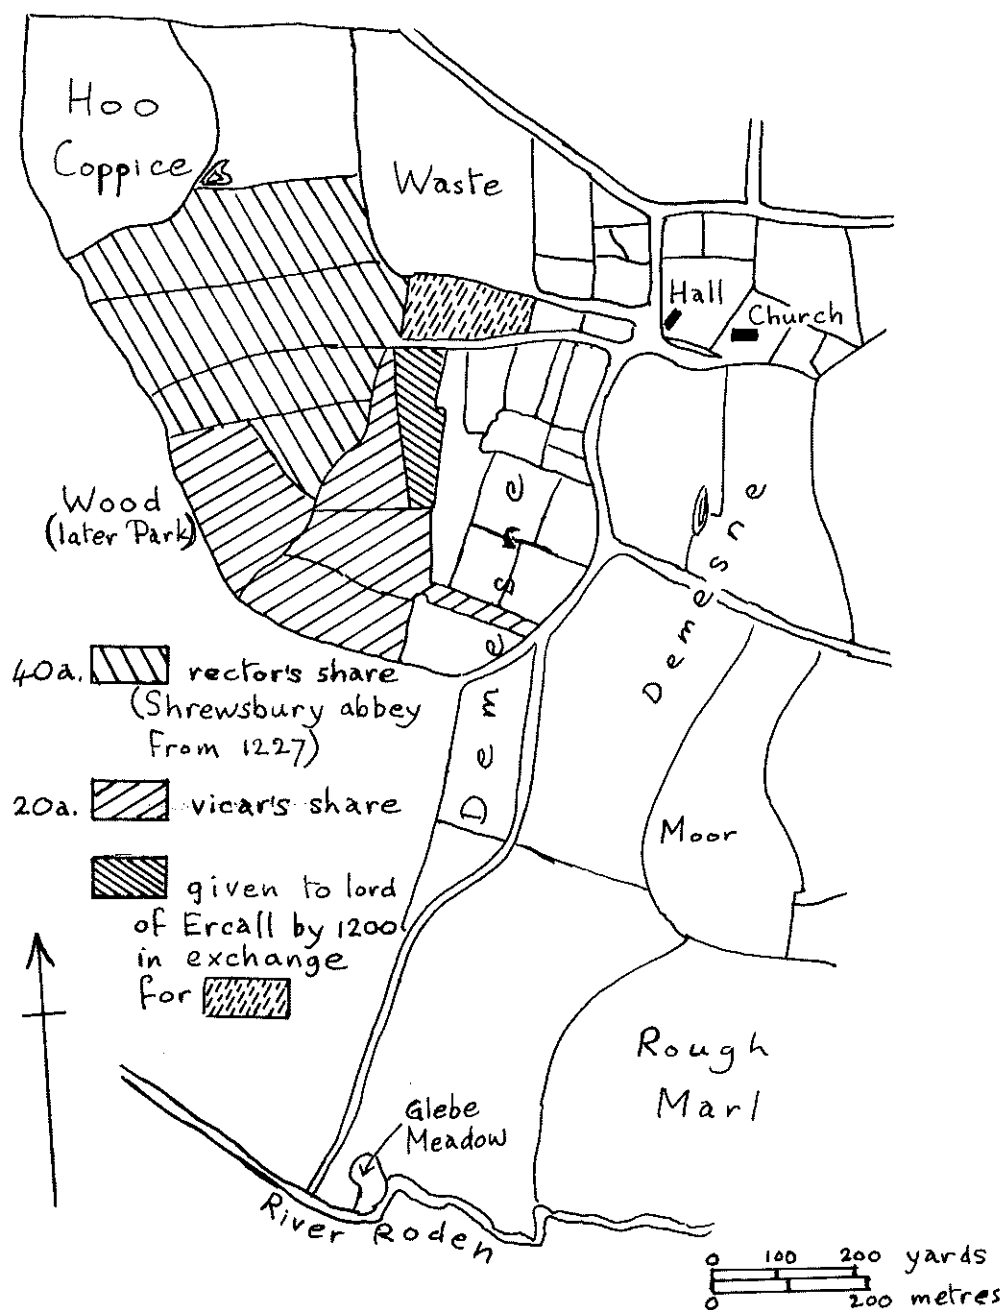 Hoo
Coppice
Waste
Hall
Church
Wood
(later Park)
Demesne
Demesne
40a. rector's share
(Shrewsbury abbey
from 1227)
20a. vicar's share
given to lord
of Ercall by 1200
in exchange
for
Moor
Rough
Marl
Glebe
Meadow
River Roden
0 100 200 yards
0 200 metres